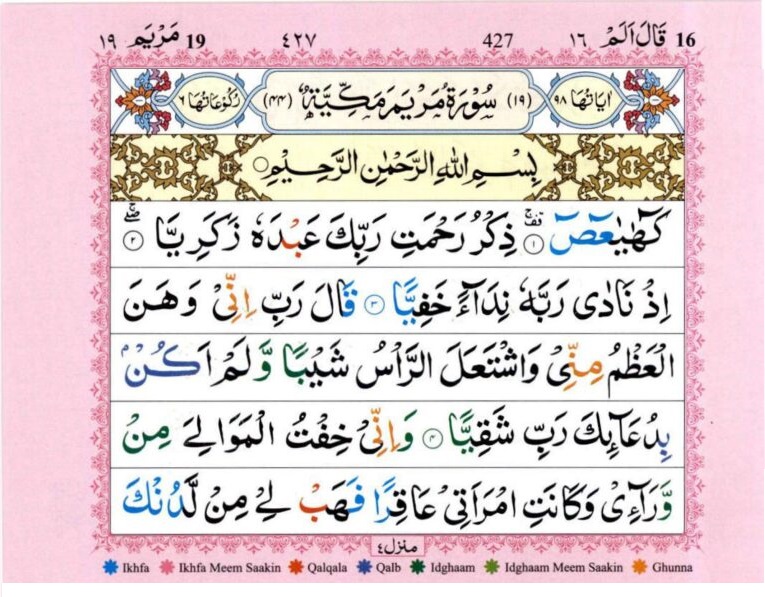 16 قَالَ اَلَمْ ١٦ 427 ٤٢٧ 19 مَرْيَم ١٩
اٰيَاتُهَا ٩٨ (١٩) سُوْرَةُ مَرْيَمَ مَكِّيَّةٌ (٤٤) رُكُوْعَاتُهَا ٦
بِسْمِ اللّٰهِ الرَّحْمٰنِ الرَّحِيْمِ
كٓهٰيٰعٓصٓ ۚ ١ ذِكْرُ رَحْمَتِ رَبِّكَ عَبْدَهٗ زَكَرِيَّا ۖ ٢
اِذْ نَادٰى رَبَّهٗ نِدَآءً خَفِيًّا ٣ قَالَ رَبِّ اِنِّيْ وَهَنَ
الْعَظْمُ مِنِّيْ وَاشْتَعَلَ الرَّاْسُ شَيْبًا وَّلَمْ اَكُنْۢ
بِدُعَآئِكَ رَبِّ شَقِيًّا ٤ وَاِنِّيْ خِفْتُ الْمَوَالِيَ مِنْ
وَّرَآءِيْ وَكَانَتِ امْرَاَتِيْ عَاقِرًا فَهَبْ لِيْ مِنْ لَّدُنْكَ
منزل ٤
Ikhfa Ikhfa Meem Saakin Qalqala Qalb Idghaam Idghaam Meem Saakin Ghunna